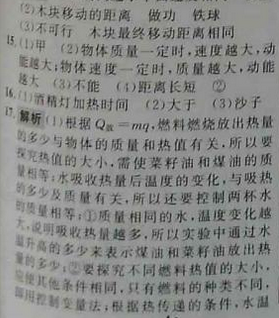 (2)木块移动的距离 做功 铁球
(3)不可行 木块最终移动距离相同
15.(1)甲 (2)物体质量一定时,速度越大,动
能越大;物体速度一定时,质量越大,动能
越大 (3)不能 (4)距离长短 ②
16.(1)酒精灯加热时间 (2)大于 (3)沙子
17.解析(1)根据Q放=mq,燃料燃烧放出热量
的多少与物体的质量和热值有关,所以要
探究热值的大小,需使菜籽油和煤油的质
量相等;水吸收热量后温度的变化,与吸热
的多少及质量有关,所以还要控制两杯水
的质量相等;①质量相同的水,温度变化越
大,说明吸收热量越多,所以实验中通过水
温升高的多少来表示煤油和菜籽油放出热
量的多少;②要探究不同燃料热值的大小,
应使其他条件相同,只有燃料的种类不同,
即用控制变量法;根据热传递的条件,水温